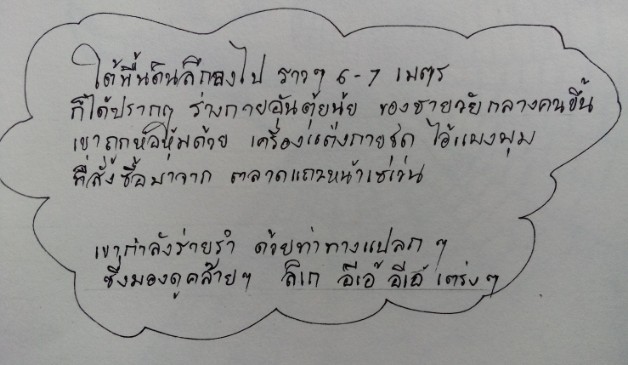 ใต้พื้นดินลึกลงไป ราวๆ 6-7 เมตร
ก็ได้ปรากฏ ร่างกายอันตุ้ยนุ้ย ของชายวัยกลางคนขึ้น
เขาถูกห่อหุ้มด้วย เครื่องแต่งกายชุด ไอ้แมงมุม
ที่สั่งซื้อมาจาก ตลาดแถวหน้าเซเว่น
เขากำลังร่ายรำ ด้วยท่าทางแปลก ๆ
ซึ่งมองดูคล้ายๆ ลิเก อีเอ๊ อีเอ๊ เตร่งๆ